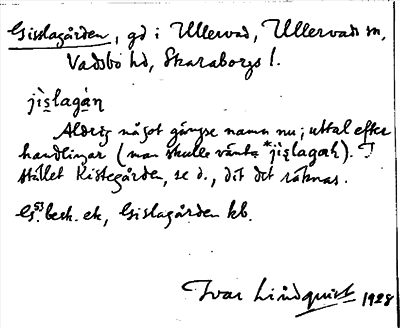 Gisslagården, gd i Ullervad, Ullervads sn,
Vadsbo hd, Skaraborgs l.
jìslagán
Aldrig något gängse namn nu; uttal efter
handlingar (man skulle vänta *jìslagaɳ). I
stället Kistegården, se d., dit det räknas.
beck. ek, Gislagården kb.
Ivar Lindquist 1928